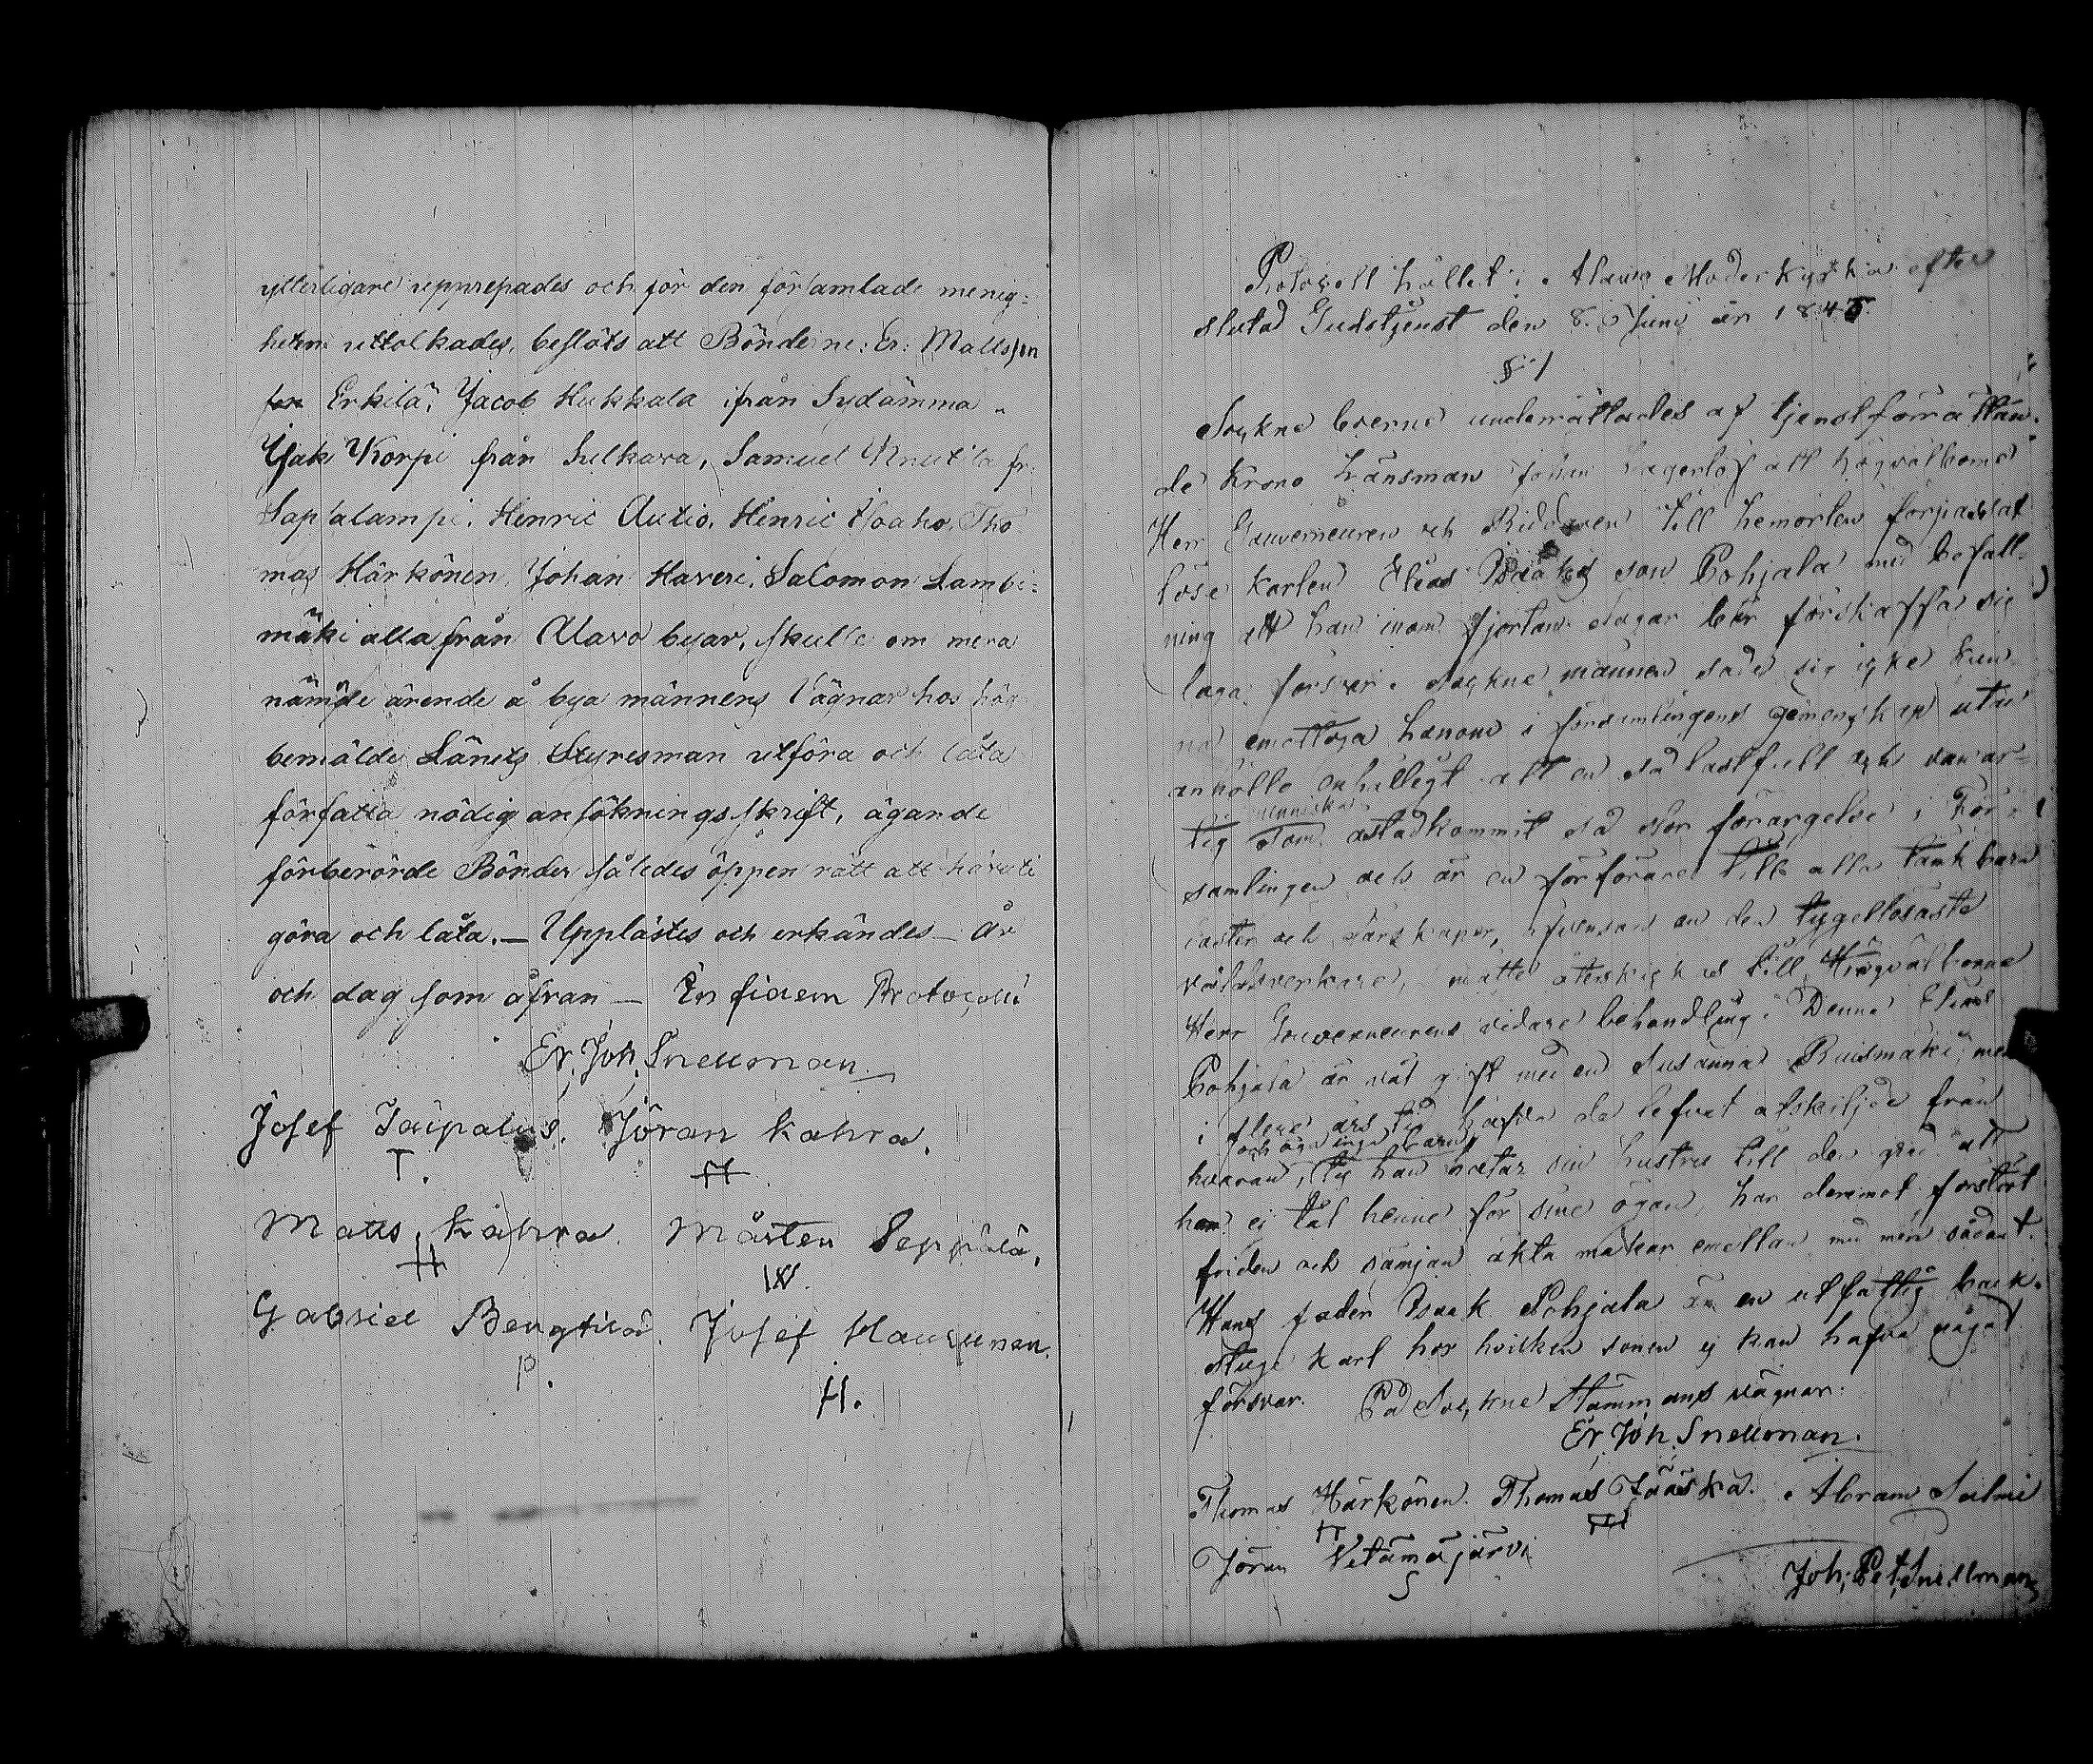 ytterligare upprepades och för den församlade menig=
heten uttolkades, beslöts att Bönderne: Er: Mattsson
Erkilä, Jacob Hukkala ifrån Sydämma
Isak Korpi från Sulkava, Samuel Knutila fr:
Sapsalampi, Henric Autio, Henric Isoaho, Tho
mas Härkönen, Johan Haveri, Salomon Lambi=
mäki alla från Alavo byar, skulle om mera
nämde ärende å bya männens vägnar hos hög
bemälde Länets Styresman utföra och låta
författa nödig ansökningsskrift, ägande
förberörde Bönder således öppen rätt att häruti
göra och låta. — Upplästes och erkändes — År
och dag som åfvan — In fidem Protocolli
Er. Joh. Snellman
Josef Taipalus. Jöran Kahra.
T. H
Matts Kahra. Mårten Seppälä.
H W.
Gabriel Bengtila. Josef Hautunen.
P. H.
Protocoll hållet i Alavo Moderkyrka efter
slutad Gudstjenst den 8. Juni år 1845.
§ 1
Sockne boerne underrättades af tjenstförrättan=
de Krono Länsman Johan Lagerlöf att högvälborne
Herr Gouverneuren och Riddaren till hemorten förpassat
löse Karlen Elias Isaksson Pohjala med befall=
ning att han inom fjorton dagar bör förskaffa sig
laga försvar. Sockne männen sade sig icke kun=
na emottaga honom i församlingens gemenskap utan
anhöllo enhälligt att en så lastfull och vanar=
menniska
tig som åstadkommit så stor förargelse i För=
samlingen och är en förförare till alla tänkbara
laster och dårskaper, äfvensom en den tygellösaste
våldsverkare, måtte återskickas till Högvälborne
Herr Gouverneurens vidare behandling. Denne Elias
Pohjala är väl gift med en Susanna Ruismäki, men
i flere års tid hafva de lefvat åtskiljde från
och äga inga barn
hvaran, ty han hatar sin hustru till den grad att
han ej tål henne för sine ögon, har deremot förstört
friden och sämjan äkta makar emellan med mera sådant.
Hans fader Isaak Pohjala är en utfattig back=
stuge karl hos hvilken sonen ej kan hafva något
försvar. På Sockne Stämmans vägnar:
Er. Joh. Snellman.
Thomas Härkönen. Thomas Jääskä. Abram Salmi
Jöran Vetämäjärvi
S
Joh. Pet. Snellman